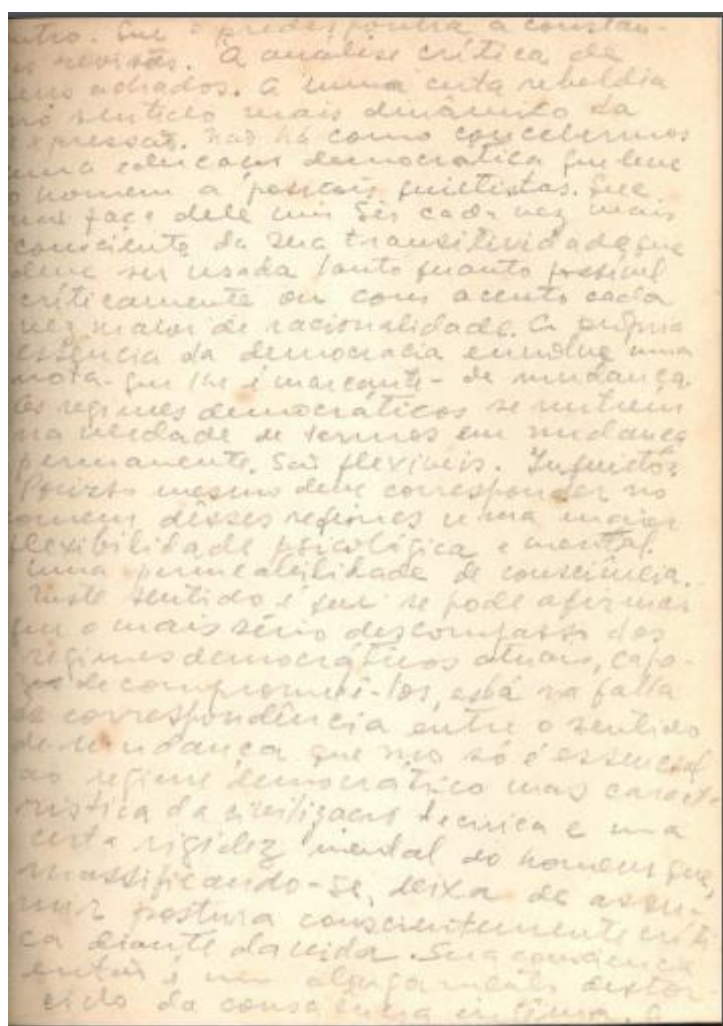 outro. Que o predisponha a constan-
tes revisões. À análise crítica de
seus achados. A uma certa rebeldia
no sentido mais dinâmico da
expressão. Não há como concebermos
uma educação democrática que leve
o homem a posições quietistas. Que
não faça dele um Ser cada vez mais
consciente da sua transitividade que
deve ser usada tanto quanto possível
críticamente ou com acento cada
vez maior de racionalidade. A própria
essência da democracia envolve uma
nota - que lhe é marcante - de mudança.
Os regimes democráticos se nutrem
na verdade de termos em mudança
permanente. São flexíveis. Inquietos
Por isto mesmo deve corresponder no
homem dêsses regimes uma maior
flexibilidade psicológica e mental.
Uma permeabilidade de consciência.
Neste sentido é que se pode afirmar
que o mais sério descompasso dos
regimes democráticos atuais, capa-
zes de comprometê-los, está na falta
de correspondência entre o sentido
de mudança que não só é essencial
ao regime democrático mas caracte
rística da civilização técnica e uma
certa rigidez mental do homem que,
massificando-se, deixa de assu-
mir postura conscientemente críti
ca diante da vida. Sua consciência
então é um alongamento distor-
cido da consciência